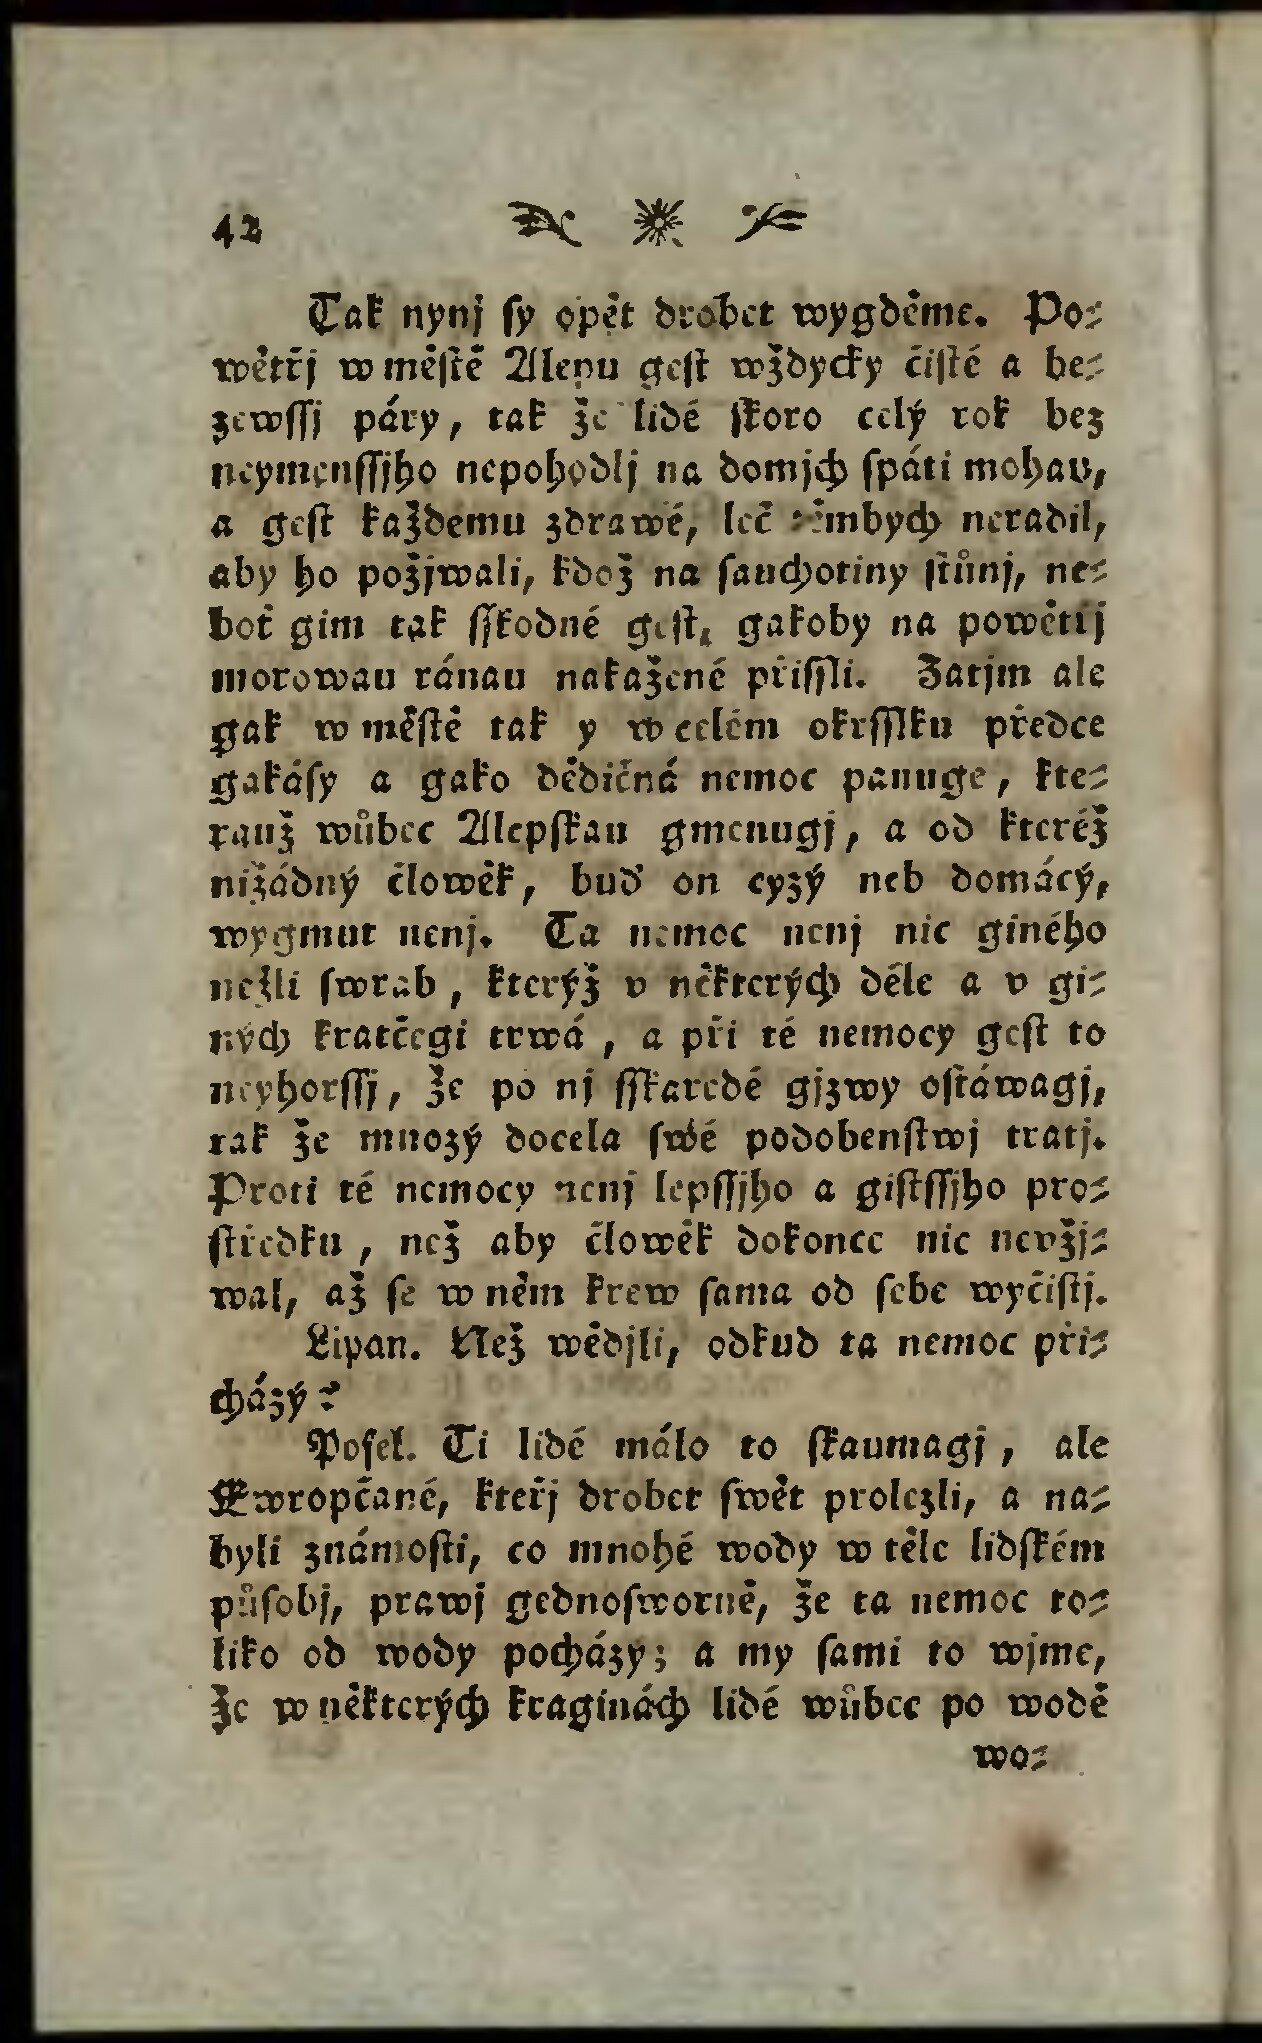 42
Tak nynj sy opět drobet wygděme. Po-
wětřj w městě Alepu gest wždycky čisté a be-
zewssj páry, tak že lidé skoro celý rok bez
neymenssjho nepohodlj na domjch spáti mohau,
a gest každemu zdrawé, leč těmbych neradil,
aby ho požjwali, kdož na sauchotiny stůnj, ne-
boť gim tak sskodné gest, gakoby na powětřj
morowau ránau nakažené přissli. Zatjm ale
gak w městě tak y w celém okrsslku předce
gakásy a gako dědičná nemoc panuge, kte-
rauž wůbec Alepskau gmenugj, a od kteréž
nižádný člowěk, buď on cyzý neb domácý,
wygmut nenj. Ta nemoc nenj nic giného
nežli swrab, kterýž v některých děle a v gi-
ných kratčegi trwá, a při té nemocy gest to
neyhorssj, že po nj sskaredé gjzwy ostáwagj,
tak že mnozý docela swé podobenstwj tratj.
Proti té nemocy nenj lepssjho a gistssjho pro-
středku, než aby člowěk dokonce nic nevžj-
wal, až se w něm krew sama od sebe wyčistj.
Lipan. Než wědjli, odkud ta nemoc při-
cházý?
Posel. Ti lidé málo to skaumagj, ale
Ewropčané, kteřj drobet swět prolezli, a na-
byli známosti, co mnohé wody w těle lidském
působj, prawj gednosworně, že ta nemoc to-
liko od wody pocházy; a my sami to wjme,
že w některých kraginách lidé wůbec po wodě
wo-